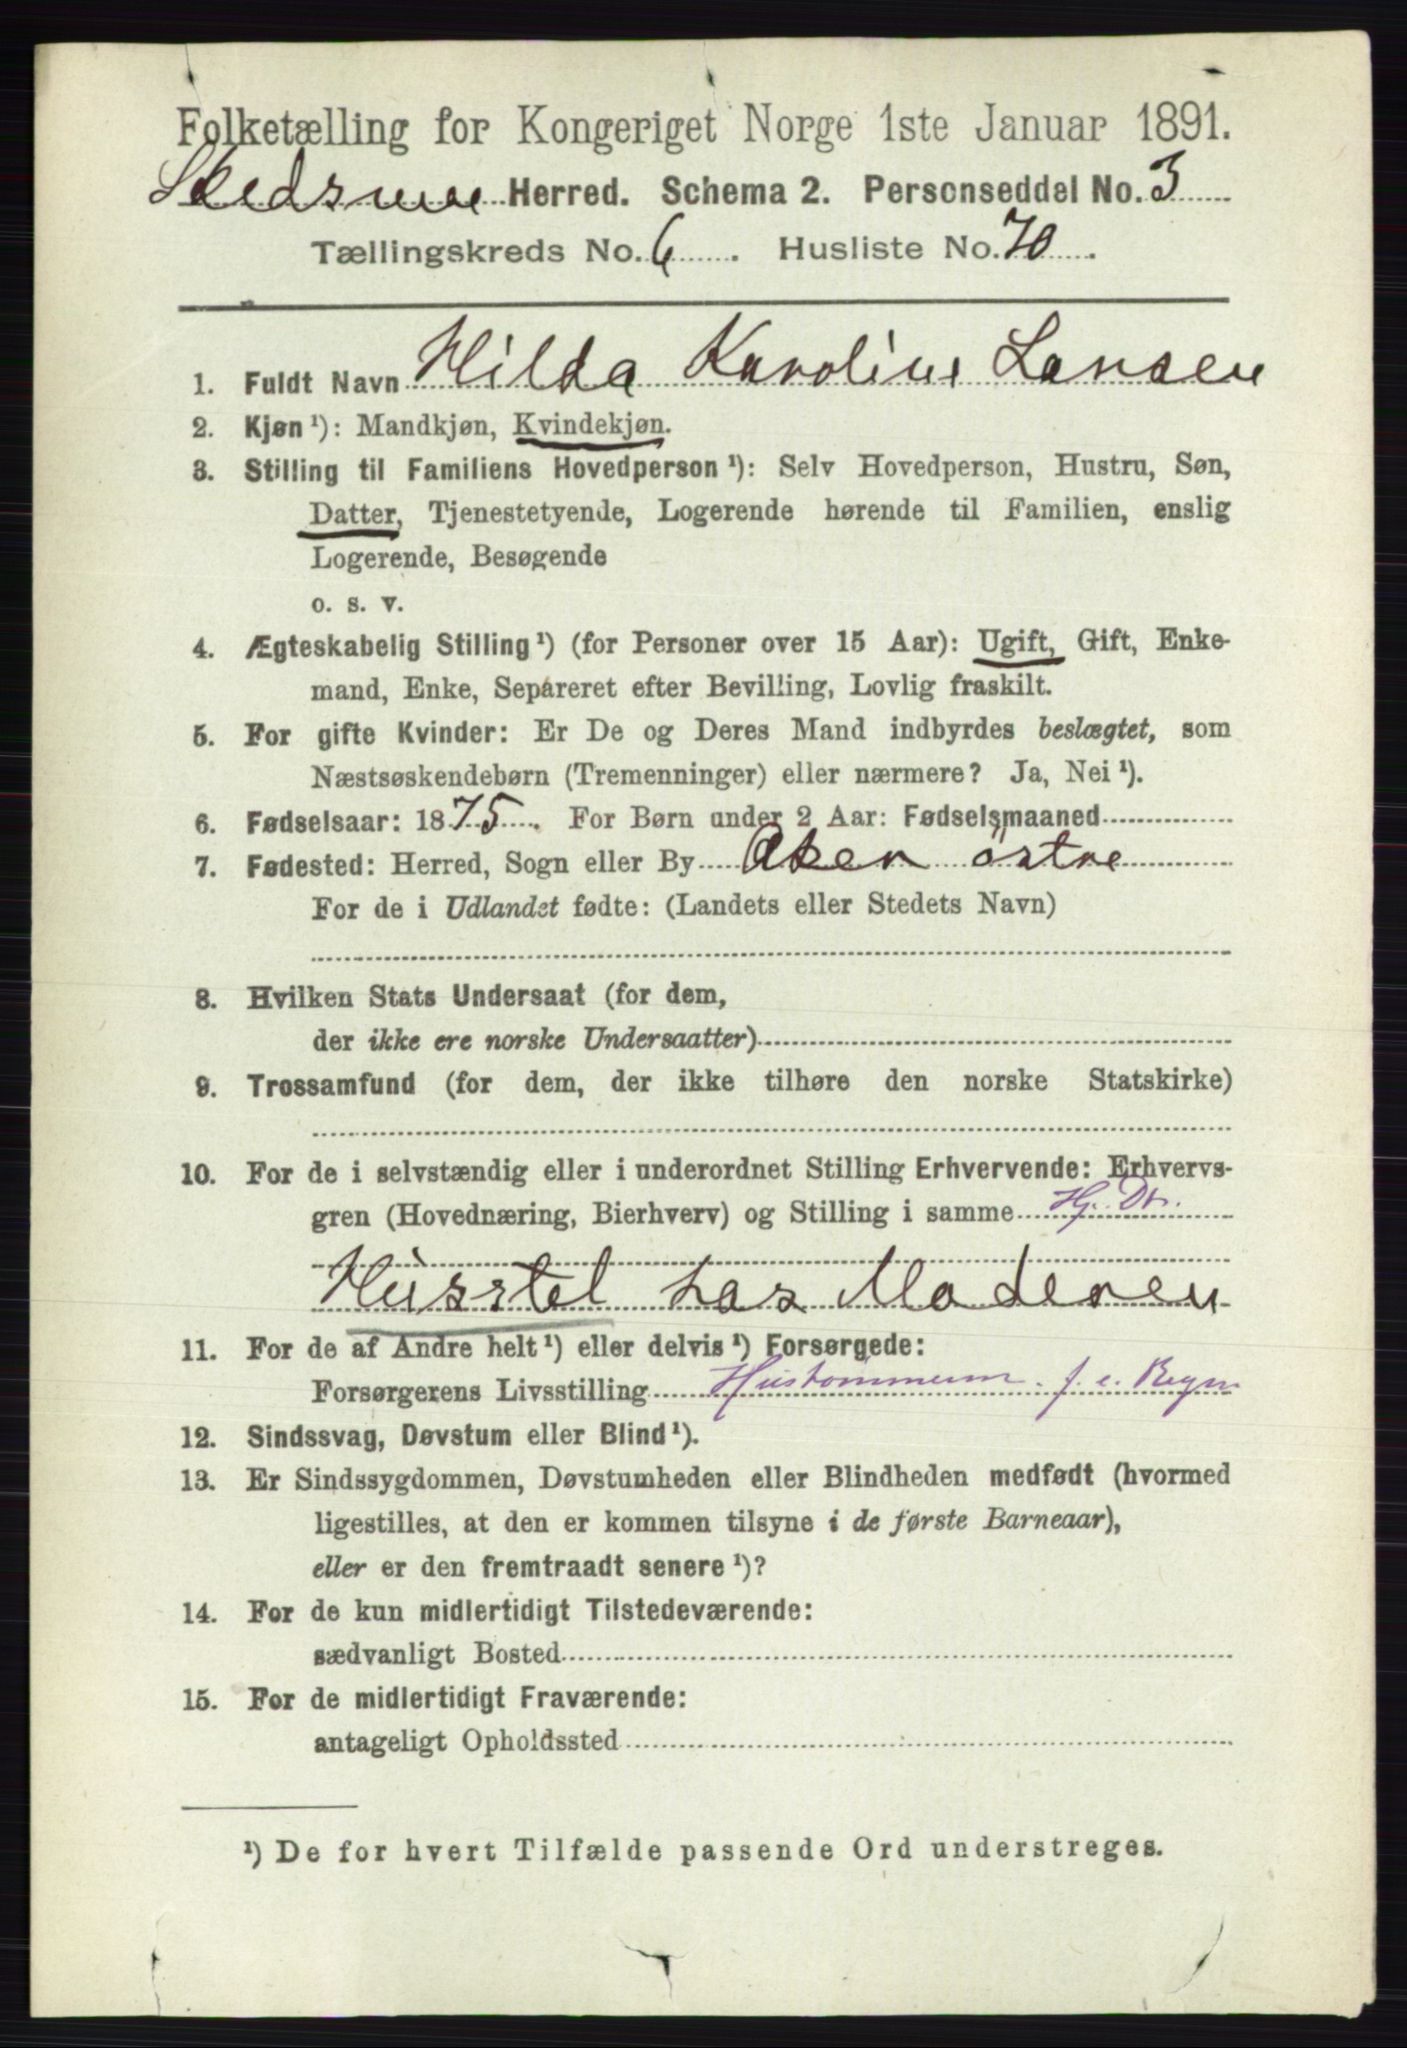 Folketælling for Kongeriget Norge 1ste Januar 1891.
Skedsmoe Herred. Schema 2. Personseddel No. 3
Tællingskreds No. 6. Husliste No. 70.
1. Fuldt Navn Hilda Karoline Larsen
2. Kjøn ¹): Mandkjøn, Kvindekjøn.
3. Stilling til Familiens Hovedperson ¹): Selv Hovedperson, Hustru, Søn,
Datter, Tjenestetyende, Logerende hørende til Familien, enslig
Logerende, Besøgende
o. s. v.
4. Ægteskabelig Stilling ¹) (for Personer over 15 Aar): Ugift, Gift, Enke-
mand, Enke, Separeret efter Bevilling, Lovlig fraskilt.
5. For gifte Kvinder: Er De og Deres Mand indbyrdes beslægtet, som
Næstsøskendebørn (Tremenninger) eller nærmere? Ja, Nei ¹).
6. Fødselsaar: 1875. For Børn under 2 Aar: Fødselsmaaned
7. Fødested: Herred, Sogn eller By Aker østre
For de i Udlandet fødte: (Landets eller Stedets Navn)
8. Hvilken Stats Undersaat (for dem,
der ikke ere norske Undersaatter)
9. Trossamfund (for dem, der ikke tilhøre den norske Statskirke)
10. For de i selvstændig eller i underordnet Stilling Erhvervende: Erhvervs-
gren (Hovednæring, Bierhverv) og Stilling i samme Hj. Dr.
Husstel hos Moderen
11. For de af Andre helt ¹) eller delvis ¹) Forsørgede:
Forsørgerens Livsstilling f. e. Regn
12. Sindssvag, Døvstum eller Blind ¹).
13. Er Sindssygdommen, Døvstumheden eller Blindheden medfødt (hvormed
ligestilles, at den er kommen tilsyne i de første Barneaar),
eller er den fremtraadt senere ¹)?
14. For de kun midlertidigt Tilstedeværende:
sædvanligt Bosted
15. For de midlertidigt Fraværende:
antageligt Opholdssted
¹) De for hvert Tilfælde passende Ord understreges.